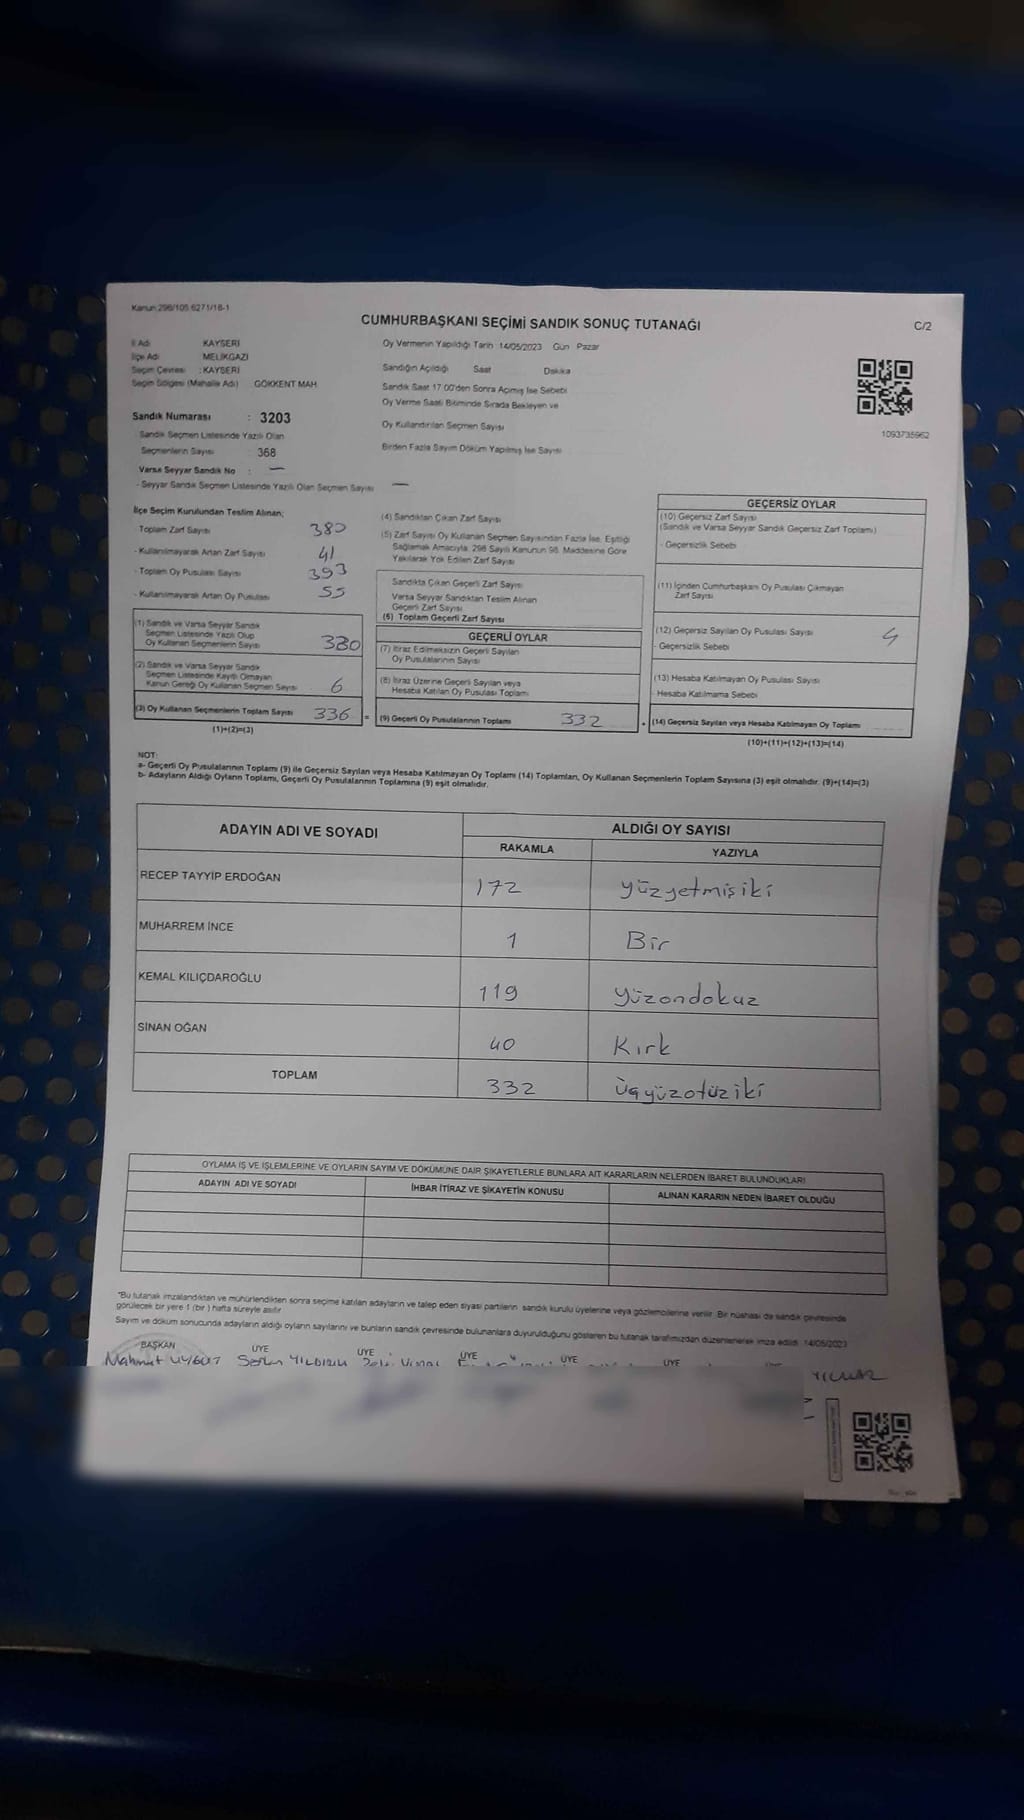 Kanun:298/105 6271/18-1
CUMHURBAŞKANI SEÇİMİ SANDIK SONUÇ TUTANAĞI
C/2
İl Adı KAYSERİ
İlçe Adı MELİKGAZİ
Seçim Çevresi : KAYSERİ
Seçim Bölgesi (Mahalle Adı) GÖKKENT MAH.
Oy Vermenin Yapıldığı Tarih 14/05/2023 Gün Pazar
Sandığın Açıldığı Saat Dakika
Sandık Saat 17.00'den Sonra Açılmış İse Sebebi
Oy Verme Saati Bitiminde Sırada Bekleyen ve
Oy Kullandırılan Seçmen Sayısı
Birden Fazla Sayım Döküm Yapılmış İse Sayısı
1093735962
Sandık Numarası : 3203
Sandık Seçmen Listesinde Yazılı Olan
Seçmenlerin Sayısı 368
Varsa Seyyar Sandık No : —
- Seyyar Sandık Seçmen Listesinde Yazılı Olan Seçmen Sayısı —
İlçe Seçim Kurulundan Teslim Alınan;
- Toplam Zarf Sayısı 380
- Kullanılmayarak Artan Zarf Sayısı 41
- Toplam Oy Pusulası Sayısı 393
- Kullanılmayarak Artan Oy Pusulası 55
(1) Sandık ve Varsa Seyyar Sandık
Seçmen Listesinde Yazılı Olup
Oy Kullanan Seçmenlerin Sayısı 330
(2) Sandık ve Varsa Seyyar Sandık
Seçmen Listesinde Kayıtlı Olmayan
Kanun Gereği Oy Kullanan Seçmen Sayısı 6
(3) Oy Kullanan Seçmenlerin Toplam Sayısı 336 =
(1)+(2)=(3)
(4) Sandıktan Çıkan Zarf Sayısı
(5) Zarf Sayısı Oy Kullanan Seçmen Sayısından Fazla İse, Eşitliği
Sağlamak Amacıyla, 298 Sayılı Kanunun 98. Maddesine Göre
Yakılarak Yok Edilen Zarf Sayısı
Sandıkta Çıkan Geçerli Zarf Sayısı
Varsa Seyyar Sandıktan Teslim Alınan
Geçerli Zarf Sayısı
(6) Toplam Geçerli Zarf Sayısı
GEÇERLİ OYLAR
(7) İtiraz Edilmeksizin Geçerli Sayılan
Oy Pusulalarının Sayısı
(8) İtiraz Üzerine Geçerli Sayılan veya
Hesaba Katılan Oy Pusulası Toplamı
(9) Geçerli Oy Pusulalarının Toplamı 332 +
GEÇERSİZ OYLAR
(10) Geçersiz Zarf Sayısı
(Sandık ve Varsa Seyyar Sandık Geçersiz Zarf Toplamı)
- Geçersizlik Sebebi
(11) İçinden Cumhurbaşkanı Oy Pusulası Çıkmayan
Zarf Sayısı
(12) Geçersiz Sayılan Oy Pusulası Sayısı 4
- Geçersizlik Sebebi
(13) Hesaba Katılmayan Oy Pusulası Sayısı
Hesaba Katılmama Sebebi
(14) Geçersiz Sayılan veya Hesaba Katılmayan Oy Toplamı
(10)+(11)+(12)+(13)=(14)
NOT:
a- Geçerli Oy Pusulalarının Toplamı (9) ile Geçersiz Sayılan veya Hesaba Katılmayan Oy Toplamı (14) Toplamları, Oy Kullanan Seçmenlerin Toplam Sayısına (3) eşit olmalıdır. (9)+(14)=(3)
b- Adayların Aldığı Oyların Toplamı, Geçerli Oy Pusulalarının Toplamına (9) eşit olmalıdır.
ADAYIN ADI VE SOYADI ALDIĞI OY SAYISI
RAKAMLA YAZIYLA
RECEP TAYYİP ERDOĞAN 172 yüzyetmişiki
MUHARREM İNCE 1 Bir
KEMAL KILIÇDAROĞLU 119 yüzondokuz
SİNAN OĞAN 40 Kırk
TOPLAM 332 üçyüzotüziki
OYLAMA İŞ VE İŞLEMLERİNE VE OYLARIN SAYIM VE DÖKÜMÜNE DAİR ŞİKAYETLERLE BUNLARA AİT KARARLARIN NELERDEN İBARET BULUNDUKLARI
ADAYIN ADI VE SOYADI İHBAR İTİRAZ VE ŞİKAYETİN KONUSU ALINAN KARARIN NEDEN İBARET OLDUĞU
*Bu tutanak imzalandıktan ve mühürlendikten sonra seçime katılan adayların ve talep eden siyasi partilerin sandık kurulu üyelerine veya gözlemcilerine verilir. Bir nüshası da sandık çevresinde
görülecek bir yere 1 (bir) hafta süreyle asılır
Sayım ve döküm sonucunda adayların aldığı oyların sayılarını ve bunların sandık çevresinde bulunanlara duyurulduğunu gösteren bu tutanak tarafımızdan düzenlenerek imza edildi. 14/05/2023
BAŞKAN ÜYE ÜYE ÜYE ÜYE ÜYE
Mahmut UYGUT YILDIRIM